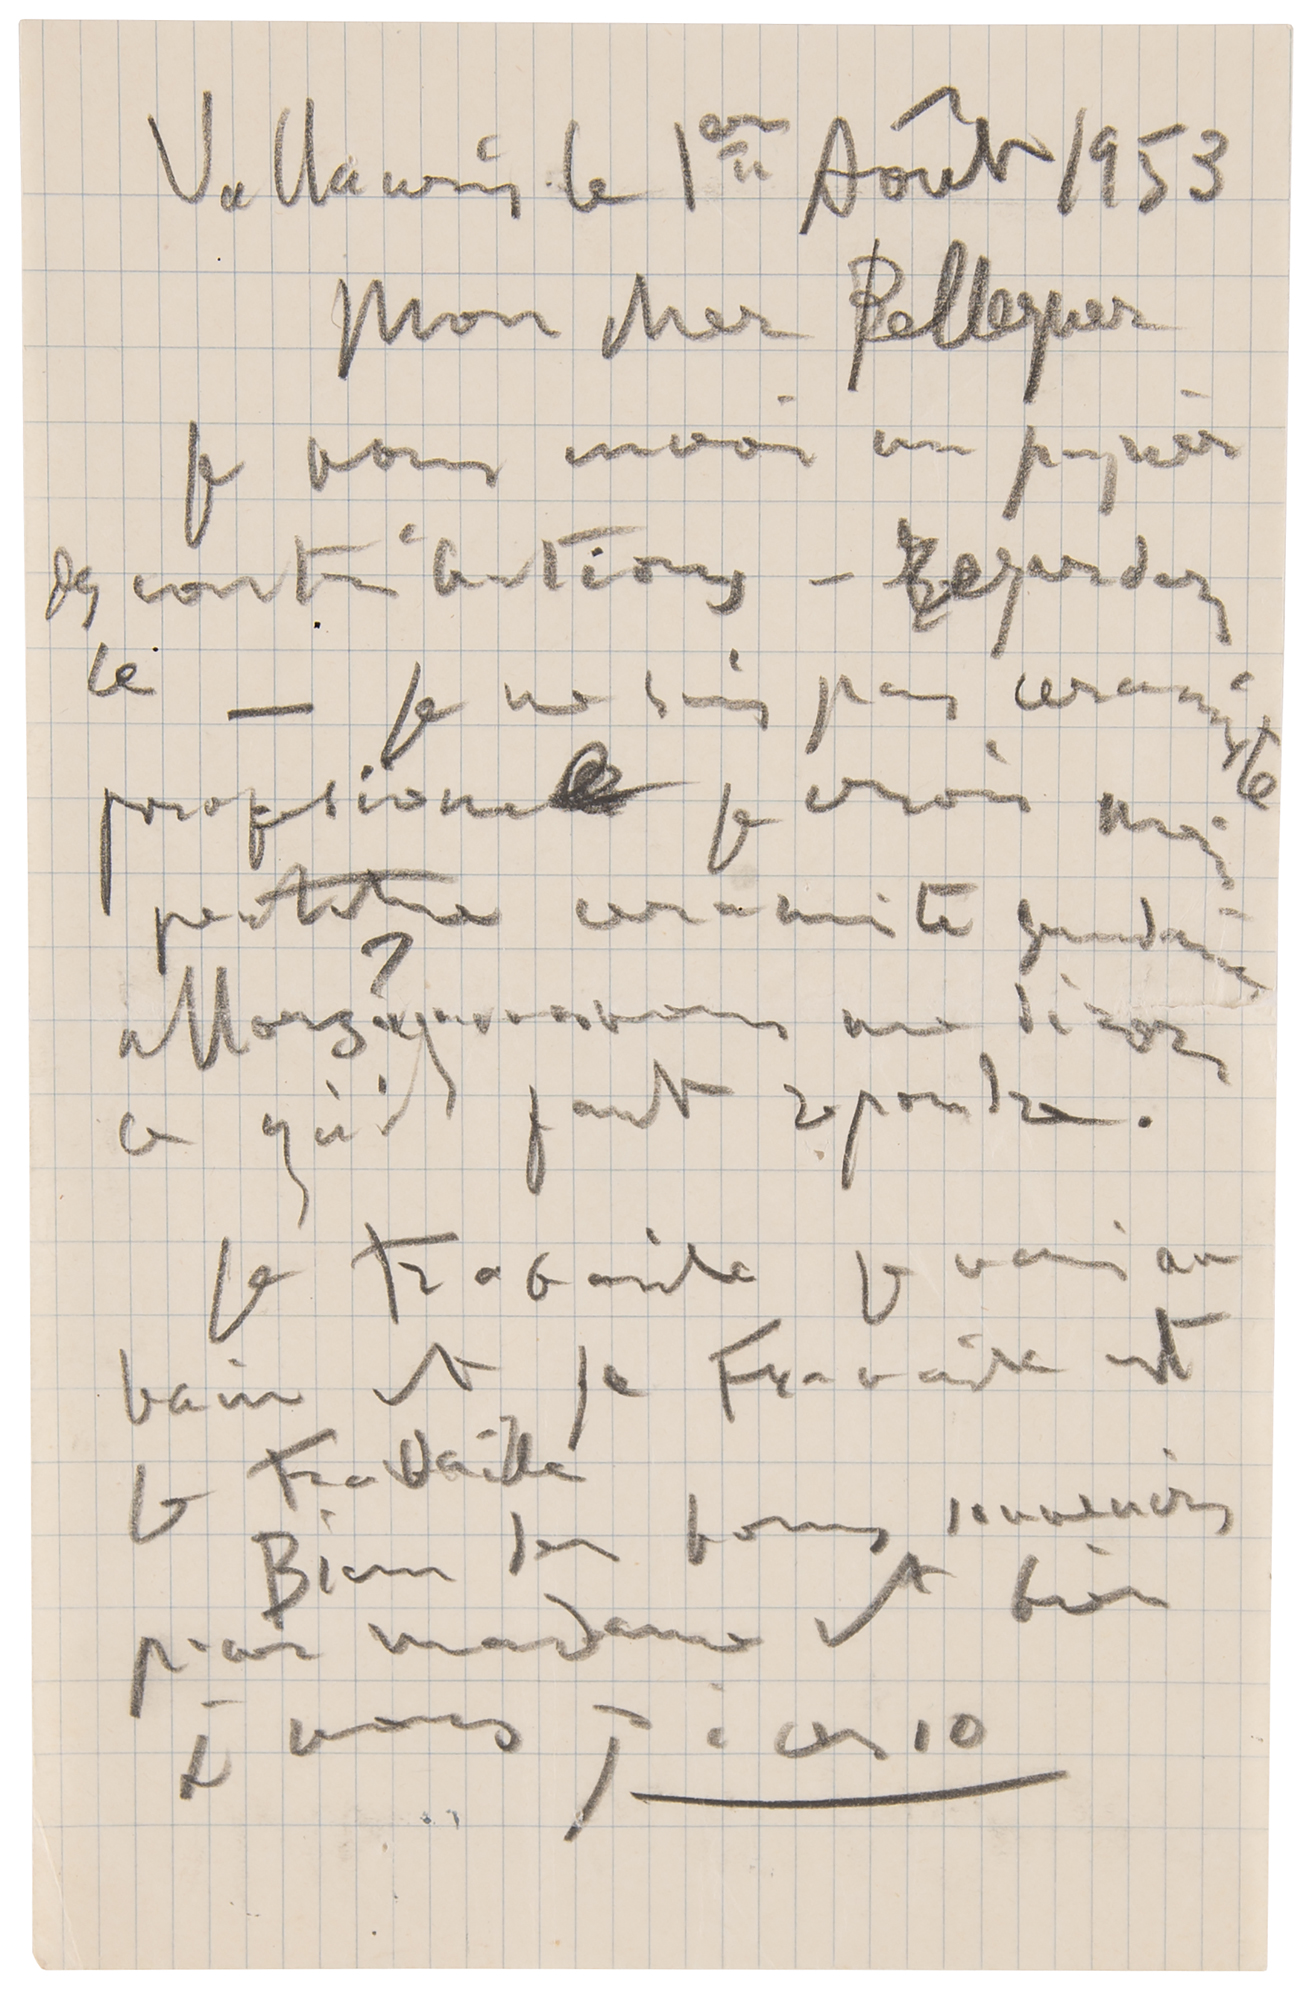 Vallauris le 1er Août 1953
Mon cher Pellequer
Je vous envoi un papier
des contributions – Regardez
le — Je ne suis pas ceramiste
profesionel je crois mais
peutetre ceramiste
allors? vous me direz
ce qui'l faut repondre.
Je travaille je vais au
bain et je travaille et
je travaille
Bien des bons souvenirs
pour madame et bien
à vous Picasso